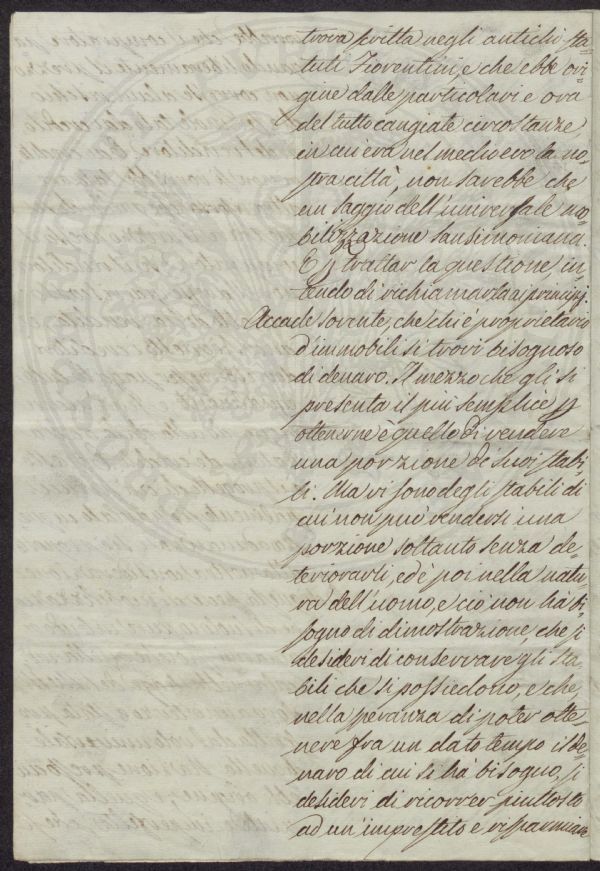 trova scritta negli antichi sta=
tuti Fiorentini, e che ebbe ori=
gine dalle particolari e ora
del tutto cangiate circostanze
in cui era nel medio evo la no=
stra città, non sarebbe che
un saggio dell'universale mo=
bilizzazione Sansimoniana.
E p trattar la questione in=
tendo di richiamarla ai principj.
Accade sovente, che chi è proprietario
d'immobili si trovi bisognoso
di denaro. Il mezzo che gli si
presenta il più semplice p
ottenerne è quello di vendere
una porzione de' suoi stabi=
li. Ma vi sono degli stabili di
cui non può vendersi una
porzione soltanto senza de=
teriorarli, ed è poi nella natu=
ra dell'uomo, e ciò non hà bi=
sogno di dimostrazione, che si
desideri di conservare gli sta=
bili che si possiedono, e che,
nella speranza di poter otte=
nere fra un dato tempo il de=
naro di cui si hà bisogno, si
desideri di ricorrer piuttosto
ad un'imprestito e risparmiare